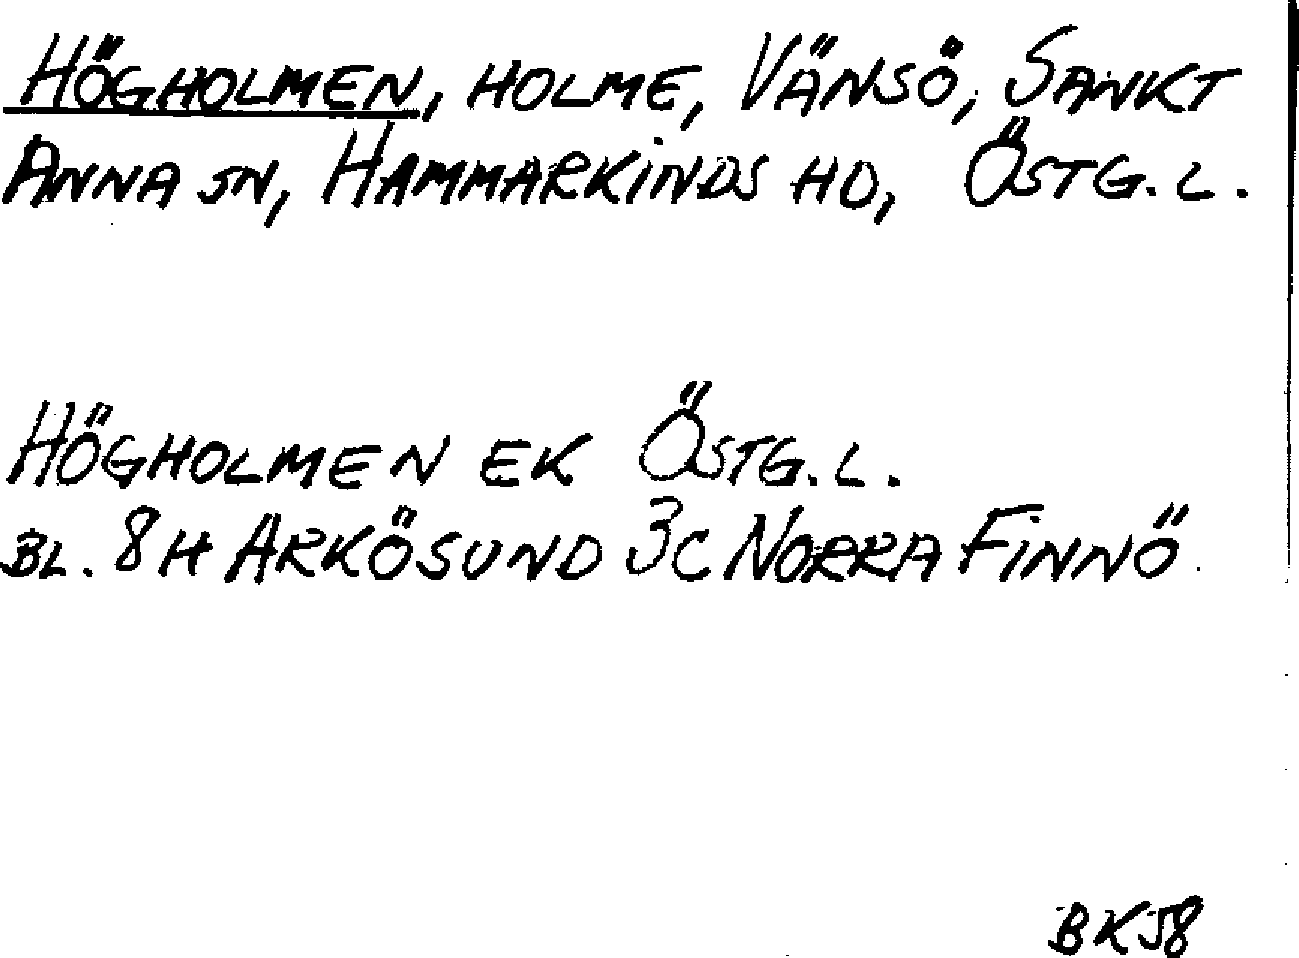 HÖGHOLMEN, HOLME, VÄNSÖ, SANKT
ANNA SN, HAMMARKINDS HD, ÖSTG. L.
HÖGHOLMEN EK ÖSTG. L.
BL. 8H ARKÖSUND 3C NORRA FINNÖ.
BK58